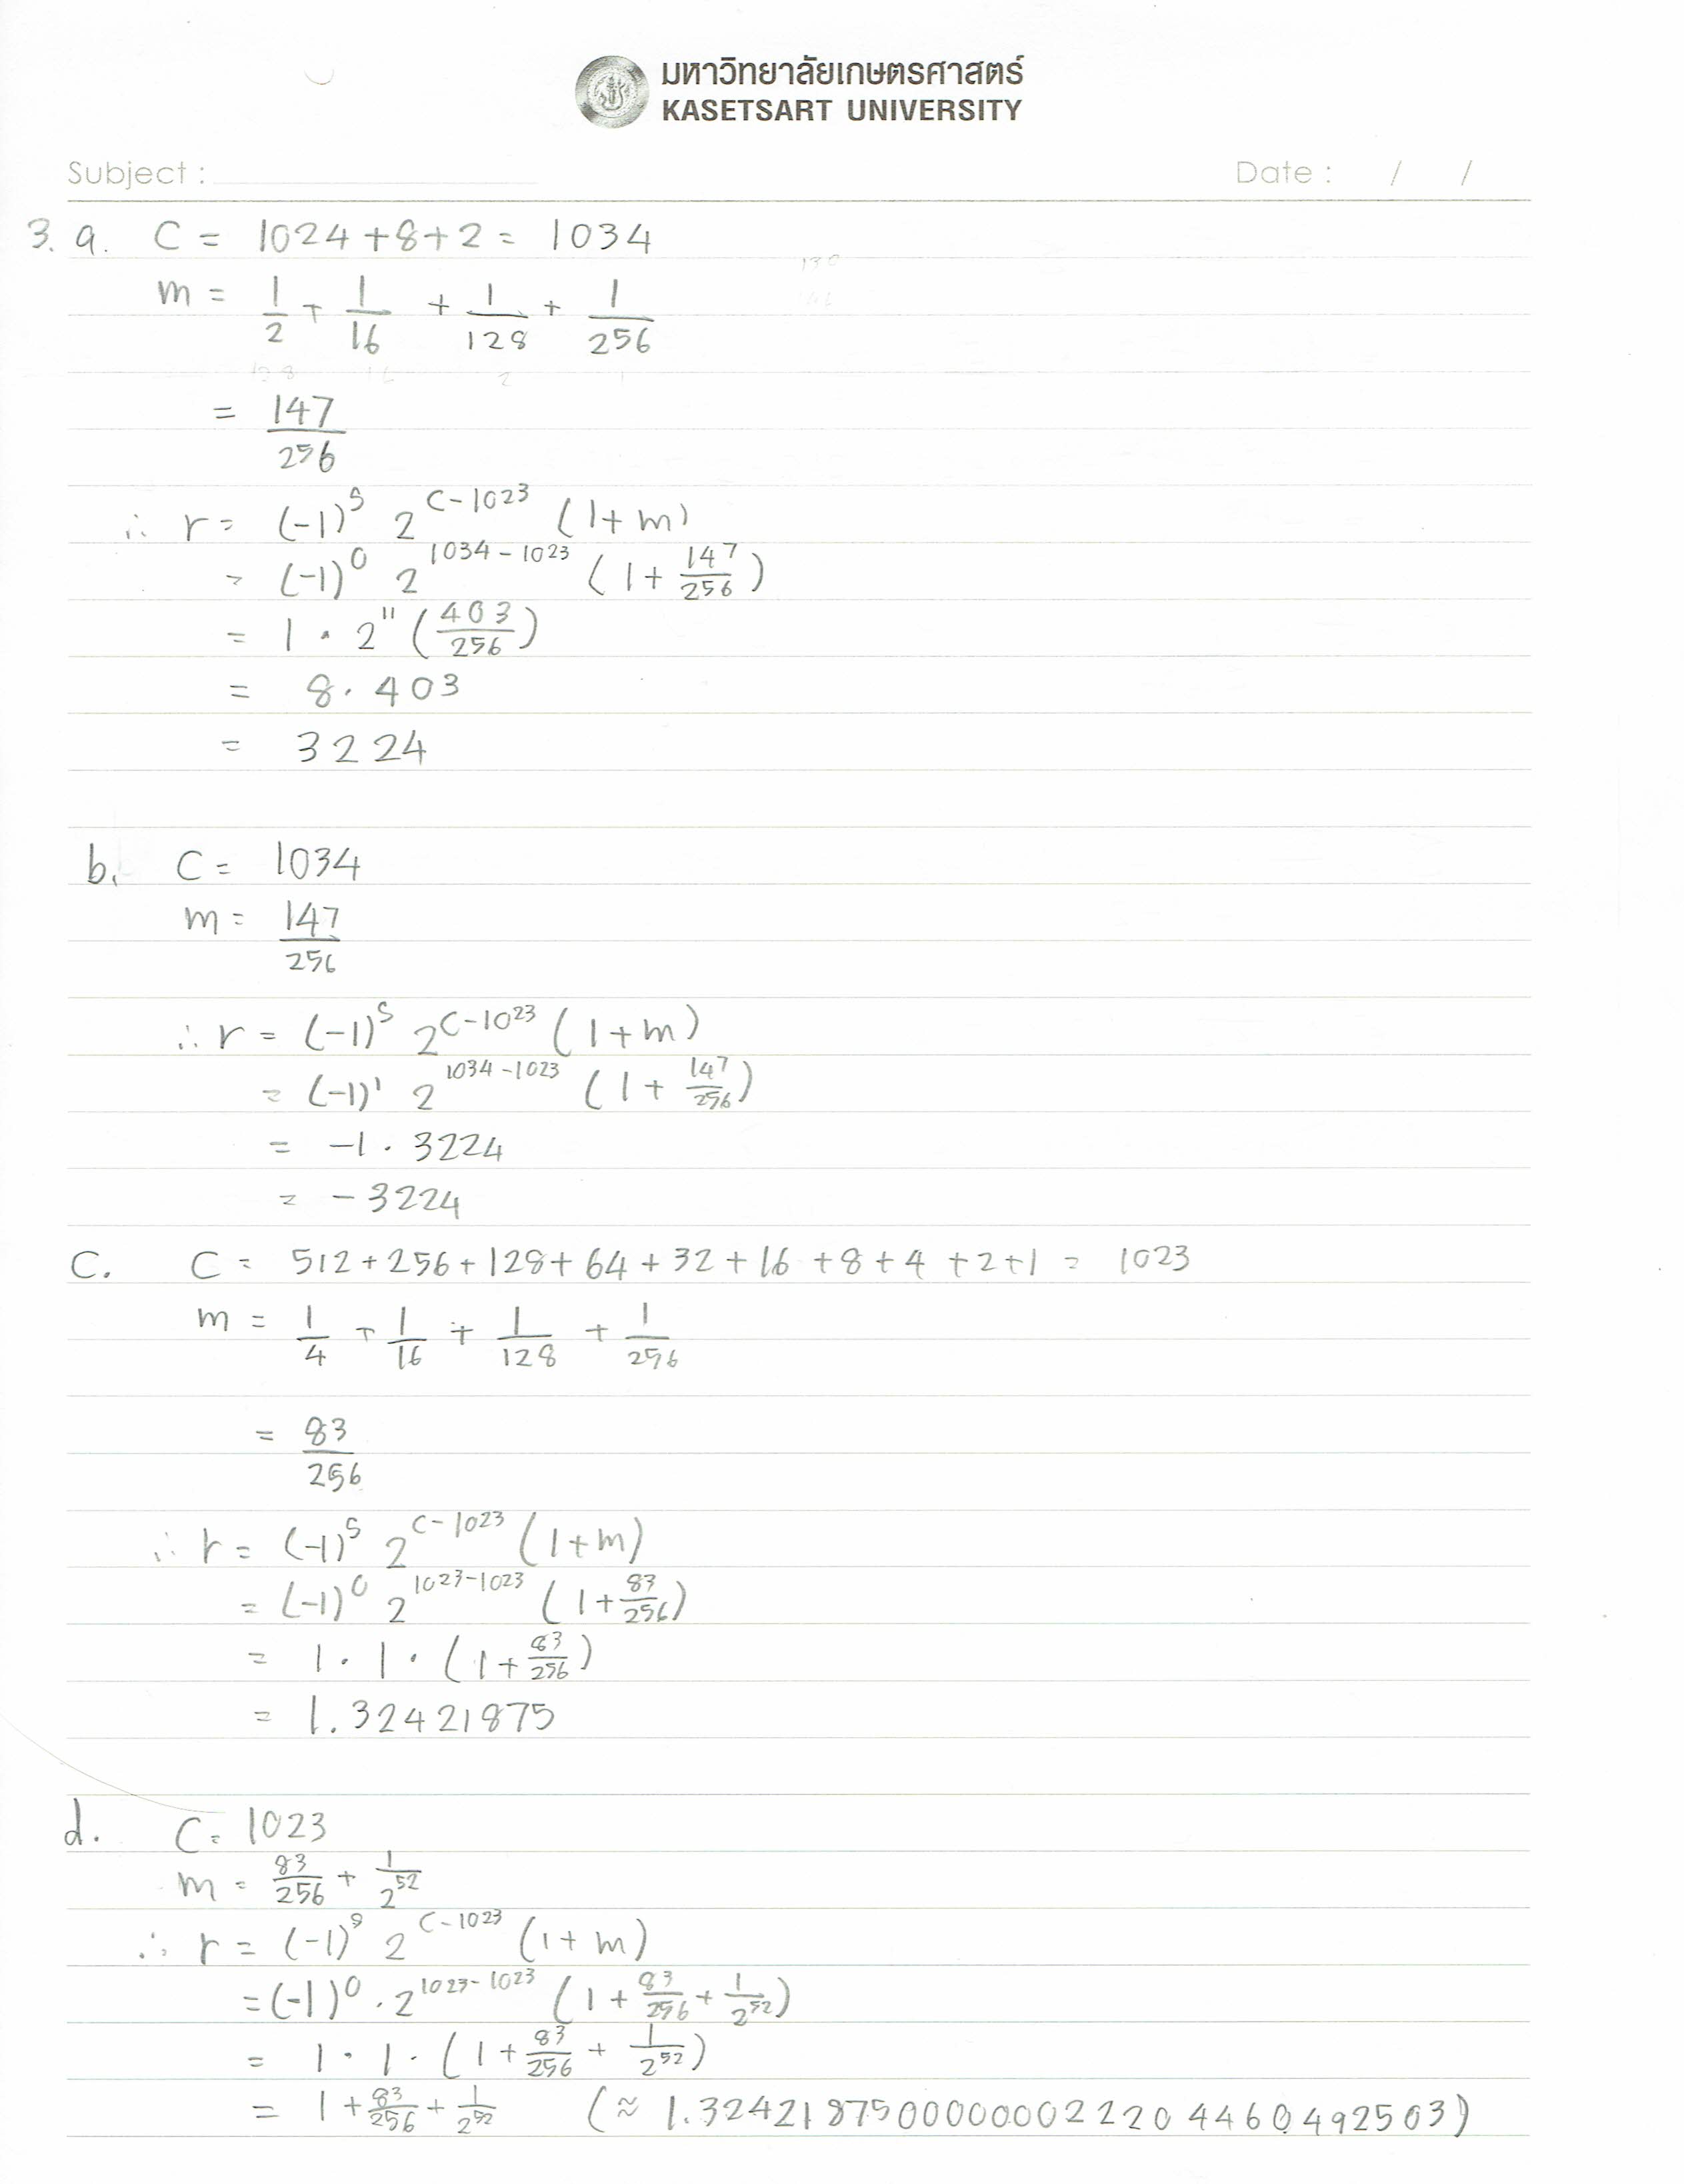 มหาวิทยาลัยเกษตรศาสตร์
KASETSART UNIVERSITY
Subject : Date : / /
3. a. C = 1024 + 8 + 2 = 1034
m = 1/2 + 1/16 + 1/128 + 1/256
= 147/256
∴ r = (-1)^S 2^(C-1023) (1+m)
= (-1)^0 2^(1034-1023) (1 + 147/256)
= 1 · 2^11 (403/256)
= 8 · 403
= 3224
b. C = 1034
m = 147/256
∴ r = (-1)^S 2^(C-1023) (1+m)
= (-1)^1 2^(1034-1023) (1 + 147/256)
= -1 · 3224
= -3224
C. C = 512 + 256 + 128 + 64 + 32 + 16 + 8 + 4 + 2 + 1 = 1023
m = 1/4 + 1/16 + 1/128 + 1/256
= 83/256
∴ r = (-1)^S 2^(C-1023) (1+m)
= (-1)^0 2^(1023-1023) (1 + 83/256)
= 1 · 1 · (1 + 83/256)
= 1.32421875
d. C = 1023
m = 83/256 + 1/2^52
∴ r = (-1)^S 2^(C-1023) (1+m)
= (-1)^0 · 2^(1023-1023) (1 + 83/256 + 1/2^52)
= 1 · 1 · (1 + 83/256 + 1/2^52)
= 1 + 83/256 + 1/2^52 (≈ 1.3242187500000000222044604925 03)